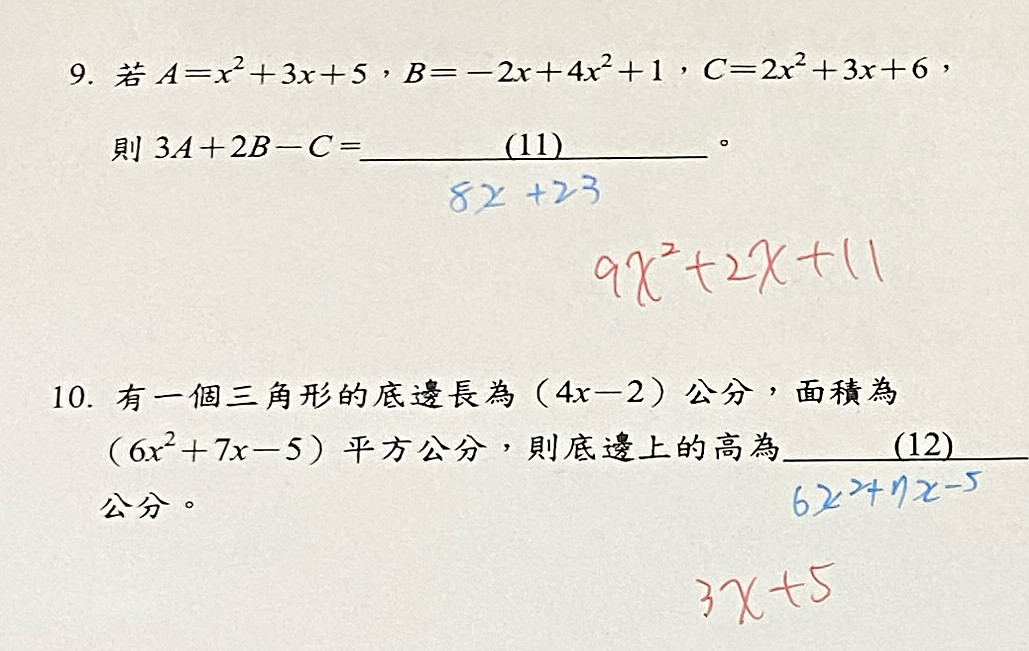 9. 若 A＝x²＋3x＋5，B＝－2x＋4x²＋1，C＝2x²＋3x＋6，
則 3A＋2B－C＝ (11) 。
8x +23
9x²+2x+11
10. 有一個三角形的底邊長為（4x－2）公分，面積為
（6x²＋7x－5）平方公分，則底邊上的高為 (12)
公分。
6x²+7x-5
3x+5